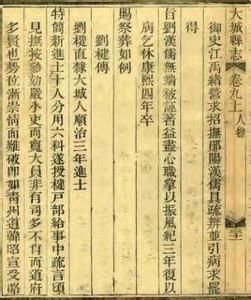 大城縣志 卷九上 人物
御史江禹緒營求招撫鄖陽漢儒具疏辨並引病求擢
台劉漢儒無端被誣著益盡心職掌以振風紀三年復以
病乞休康熙四年卒
賜祭葬如例
劉楗傳
劉楗直隸大城人順治三年進士
特簡新進士十人分用六科遂授楗戶部給事中疏言頃
見撫按參劾嚴小吏而寬大員非有司多不肖而道府
多賢也勢位漸崇情面難破即如青州道韓昭宣受賂